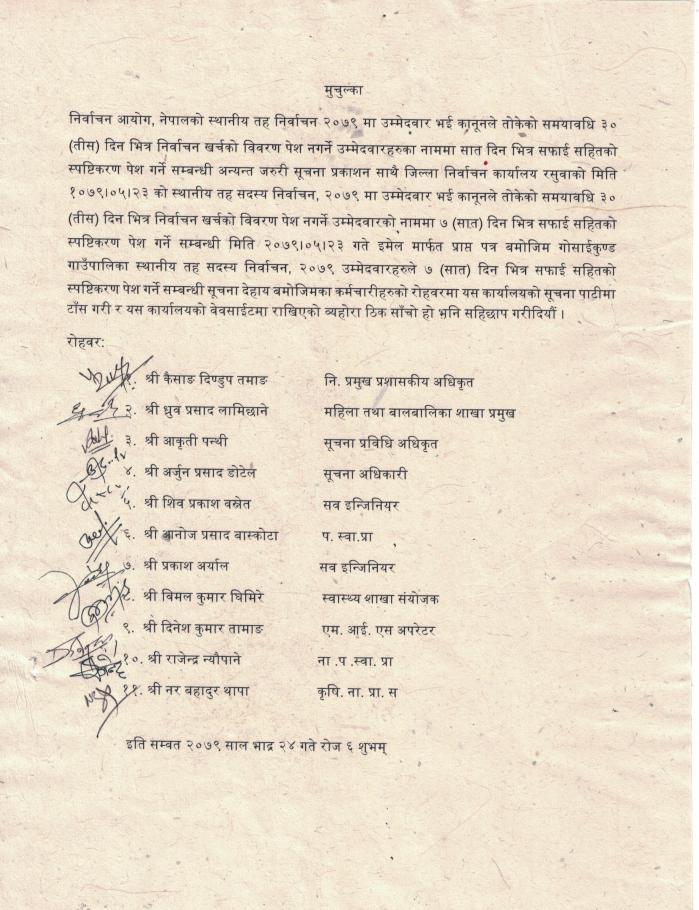 मुचुल्का
निर्वाचन आयोग, नेपालको स्थानीय तह निर्वाचन २०७९ मा उम्मेदवार भई कानूनले तोकेको समयावधि ३०
(तीस) दिन भित्र निर्वाचन खर्चको विवरण पेश नगर्ने उम्मेदवारहरुका नाममा सात दिन भित्र सफाई सहितको
स्पष्टिकरण पेश गर्ने सम्बन्धी अन्यन्त जरुरी सूचना प्रकाशन साथै जिल्ला निर्वाचन कार्यालय रसुवाको मिति
१०७९।०५।२३ को स्थानीय तह सदस्य निर्वाचन, २०७९ मा उम्मेदवार भई कानूनले तोकेको समयावधि ३०
(तीस) दिन भित्र निर्वाचन खर्चको विवरण पेश नगर्ने उम्मेदवारको नाममा ७ (सात) दिन भित्र सफाई सहितको
स्पष्टिकरण पेश गर्ने सम्बन्धी मिति २०७९।०५।२३ गते इमेल मार्फत प्राप्त पत्र बमोजिम गोसाईकुण्ड
गाउँपालिका स्थानीय तह सदस्य निर्वाचन, २०७९ उम्मेदवारहरुले ७ (सात) दिन भित्र सफाई सहितको
स्पष्टिकरण पेश गर्ने सम्बन्धी सूचना देहाय बमोजिमका कर्मचारीहरुको रोहवरमा यस कार्यालयको सूचना पाटीमा
टाँस गरी र यस कार्यालयको वेवसाईटमा राखिएको व्यहोरा ठिक साँचो हो भनि सहिछाप गरीदियौं ।
रोहवर:
१. श्री कैसाङ दिण्डुप तमाङ नि. प्रमुख प्रशासकीय अधिकृत
२. श्री ध्रुव प्रसाद लामिछाने महिला तथा बालबालिका शाखा प्रमुख
३. श्री आकृती पन्थी सूचना प्रविधि अधिकृत
४. श्री अर्जुन प्रसाद डोटेल सूचना अधिकारी
५. श्री शिव प्रकाश बस्नेत सव इन्जिनियर
६. श्री आनोज प्रसाद बास्कोटा प. स्वा.प्रा
७. श्री प्रकाश अर्याल सव इन्जिनियर
८. श्री विमल कुमार घिमिरे स्वास्थ्य शाखा संयोजक
९. श्री दिनेश कुमार तामाङ एम. आई. एस अपरेटर
१०. श्री राजेन्द्र न्यौपाने ना .प .स्वा. प्रा
११. श्री नर बहादुर थापा कृषि. ना. प्रा. स
इति सम्वत २०७९ साल भाद्र २४ गते रोज ६ शुभम्